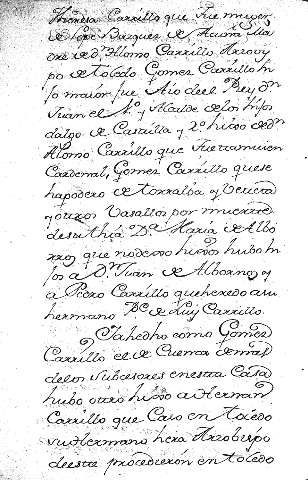 Theresa Carrillo que fue muger
de Lope Bazquez de Acuña Ma
dre de Dn Alonso Carrillo Arzovis
po de toledo Gomez Carrillo hi
jo maior fue Aio del Rey Dn
Juan el 2o y Alcalde de los hijos
dalgo de Castilla y 2o hijo de Dn
Alonso Carrillo que fue tambien
Cardenal, Gomez Carrillo que se
hapodero de torralba y Beteta
y otros Vasallos por muerte
de su thia Da Maria de Albo
rroz que no dexo hijos hubo hi
jos a Dn Juan de Albornoz y
a Pedro Carrillo que heredo a su
hermano Do de Luis Carrillo.
Ia he dho como Gomez
Carrillo el de Cuenca demas
de los subcesores en esta Casa
hubo otro hijo a Hernan
Carrillo que Caso en toledo
su Hermano hera Arzobispo
de este procedieron en toledo